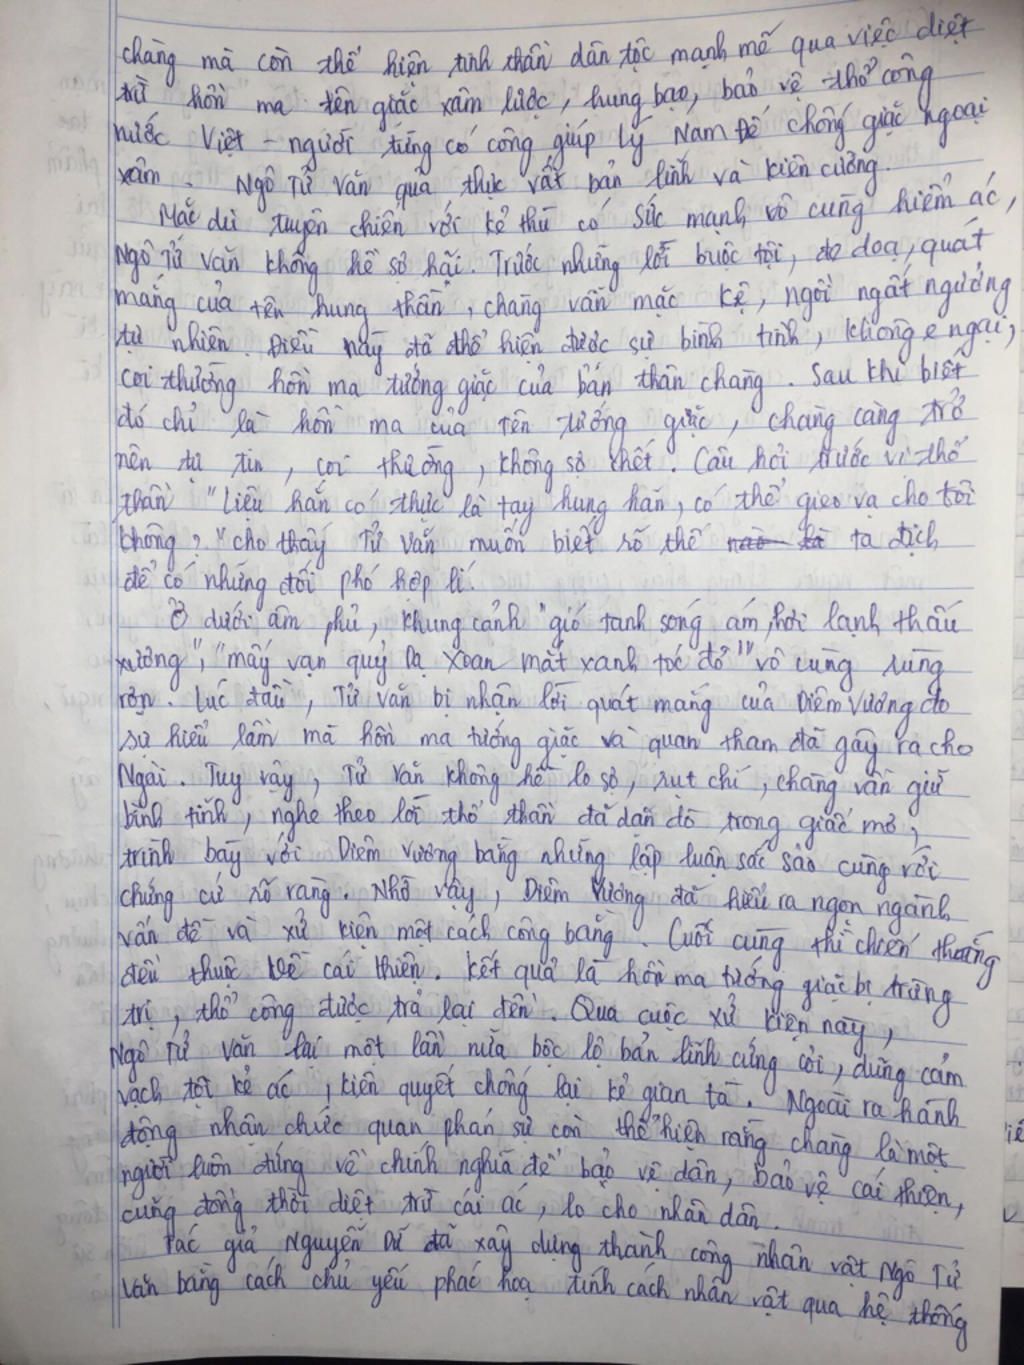 chàng mà còn thể hiện tinh thần dân tộc mạnh mẽ qua việc diệt
trừ hồn ma tên giặc xâm lược, hung bạo, bảo vệ thổ công
nước Việt - người từng có công giúp Lý Nam Đế chống giặc ngoại
xâm. Ngô Tử Văn quả thực rất bản lĩnh và kiên cường.
Mặc dù tuyên chiến với kẻ thù có sức mạnh vô cùng hiểm ác,
Ngô Tử Văn không hề sợ hãi. Trước những lời buộc tội, đe doạ, quát
mắng của tên hung thần, chàng vẫn mặc kệ, ngồi ngất ngưởng
tự nhiên. Điều này đã thể hiện được sự bình tĩnh, không e ngại,
coi thường hồn ma tướng giặc của bản thân chàng. Sau khi biết
đó chỉ là hồn ma của tên tướng giặc, chàng càng trở
nên tự tin, coi thường, không sợ chết. Câu hỏi trước vị thổ
thần "Liệu hắn có thực là tay hung hãn, có thể gieo vạ cho tôi
không?" cho thấy Tử Văn muốn biết rõ thế nào là ta địch
để có những đối phó hợp lí.
Ở dưới âm phủ, khung cảnh "gió tanh sóng ám, hơi lạnh thấu
xương", "mấy vạn quỷ Dạ Xoan mắt xanh tóc đỏ" vô cùng rùng
rợn. Lúc đầu, Tử Văn bị nhận lời quát mắng của Diêm Vương do
sự hiểu lầm mà hồn ma tướng giặc và quan tham đã gây ra cho
Ngài. Tuy vậy, Tử Văn không hề lo sợ, rụt chí, chàng vẫn giữ
bình tĩnh, nghe theo lời thổ thần đã dặn dò trong giấc mơ,
trình bày với Diêm Vương bằng những lập luận sắc sảo cùng với
chứng cứ rõ ràng. Nhờ vậy, Diêm Vương đã hiểu ra ngọn ngành
vấn đề và xử kiện một cách công bằng. Cuối cùng thì chiến thắng
đều thuộc về cái thiện. Kết quả là hồn ma tướng giặc bị trừng
trị, thổ công được trả lại đền. Qua cuộc xử kiện này,
Ngô Tử Văn lại một lần nữa bộc lộ bản lĩnh cứng cỏi, dũng cảm
vạch tội kẻ ác, kiên quyết chống lại kẻ gian tà. Ngoài ra hành
động nhận chức quan phán sự còn thể hiện rằng chàng là một
người luôn đứng về chính nghĩa để bảo vệ dân, bảo vệ cái thiện,
cũng đồng thời diệt trừ cái ác, lo cho nhân dân.
Tác giả Nguyễn Dữ đã xây dựng thành công nhân vật Ngô Tử
Văn bằng cách chủ yếu phác hoạ tính cách nhân vật qua hệ thống